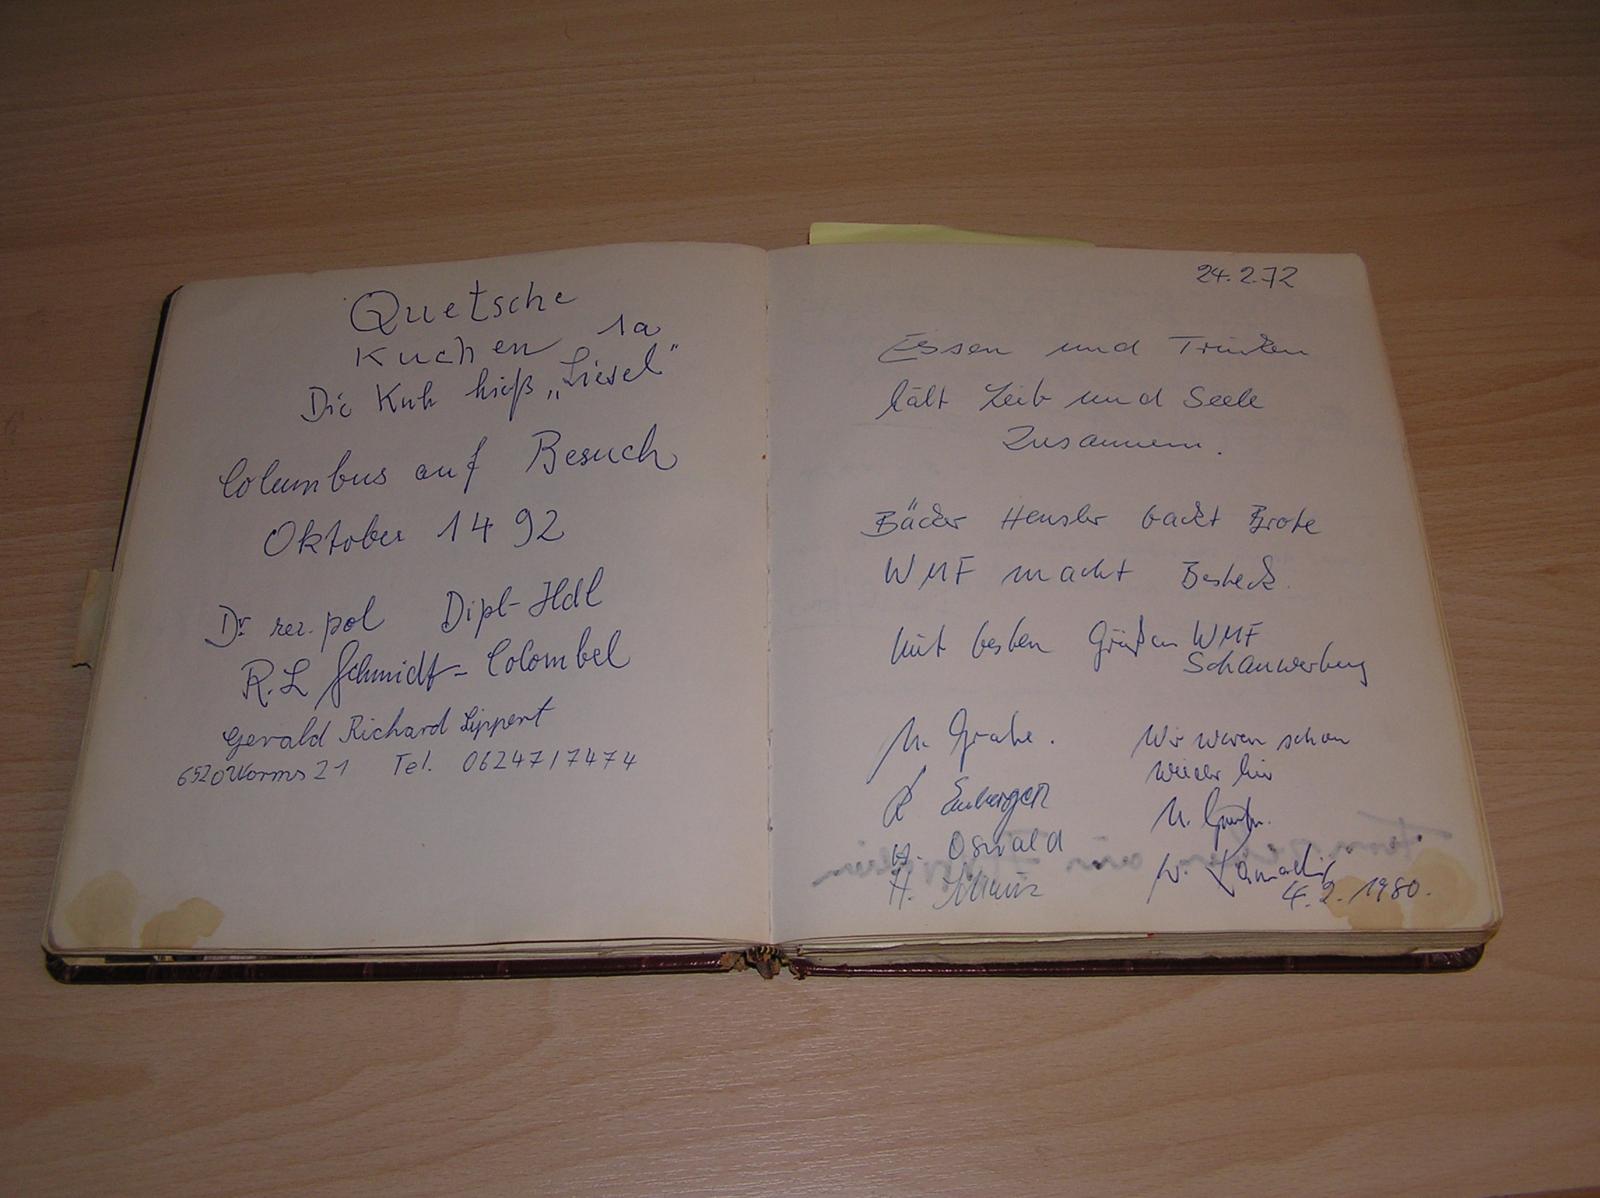 Quetsche
Kuchen 1a
Die Kuh hieß „Liesel"
Columbus auf Besuch
Oktober 1492
Dr rer. pol Dipl-Hdl
R.L Schmidt-Colombel
Gerald Richard Lippert
6520 Worms 21 Tel. 06247/7474
24.2.72
Essen und Trinken
hält Leib und Seele
Zusammen.
Bäcker Hensler backt Brote
WMF macht Besteck.
Mit besten Grüßen WMF
Schauwerbung
M. Grabe.
H. Oswald
H.
Wir waren schon
wieder hier
M.
W.
4.2.1980.